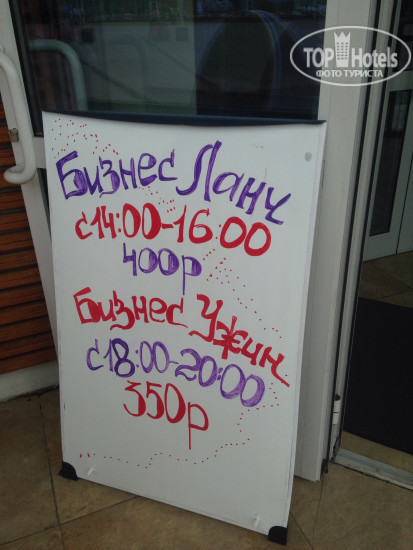 TOP Hotels
ФОТО ТУРИСТА
Бизнес Ланч
с 14:00-16:00
400р
Бизнес Ужин
с 18:00-20:00
350р